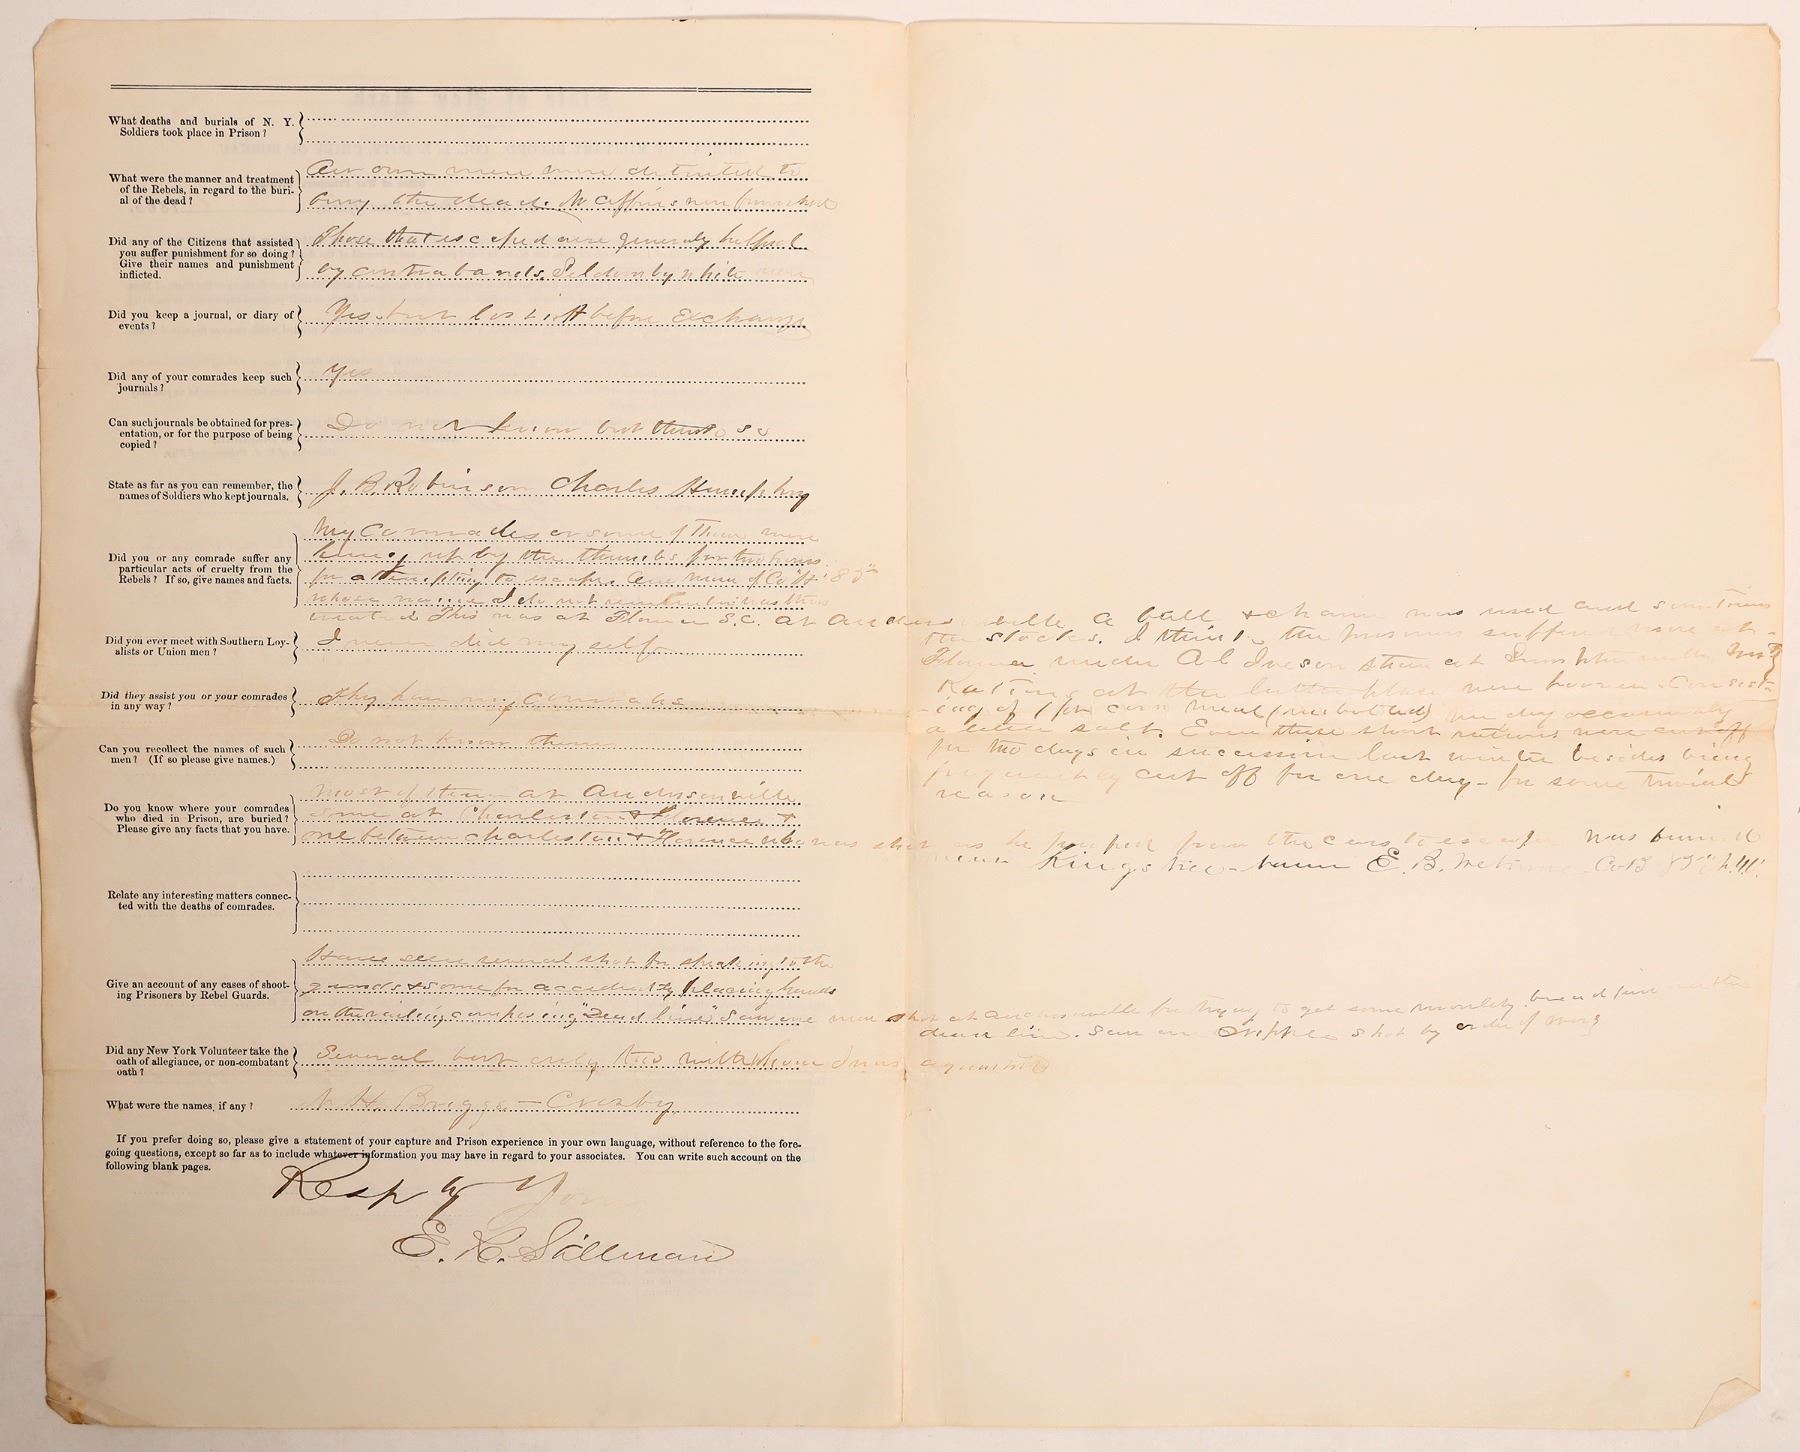 What deaths and burials of N. Y.
Soldiers took place in Prison?
What were the manner and treatment
of the Rebels, in regard to the buri-
al of the dead?
our own men were detailed to
bury the dead. No coffins were furnished
Did any of the Citizens that assisted
you suffer punishment for so doing?
Give their names and punishment
inflicted.
Those that escaped were generaly helped
by contrabands. Seldom by white men
Did you keep a journal, or diary of
events?
Yes but lost it before Exchange
Did any of your comrades keep such
journals?
Yes
Can such journals be obtained for pres-
entation, or for the purpose of being
copied?
Do not know but think so
State as far as you can remember, the
names of Soldiers who kept journals.
J. B. Robinson Charles Humphrey
Did you or any comrade suffer any
particular acts of cruelty from the
Rebels? If so, give names and facts.
My Comrades or some of them were
hung up by the thumbs for two hours
for attempting to escape. One man of Co "H" 85th
whose name I do not remember was thus
treated This was at Florence S.C. at Andersonville a ball & chain was used and sometimes
the stocks. I think the prisoners suffered more at
Florence under Col Iveson than at
Rations at the latter place were Consist-
ing of 1 pt corn meal (unbolted) per day occasionaly
a little salt. Even these short rations were cut off
for two days in succession last winter besides being
frequently cut off for one day - for some trivial
reason
Did you ever meet with Southern Loy-
alists or Union men?
I never did my self
Did they assist you or your comrades
in any way?
They have my comrades
Can you recollect the names of such
men? (If so please give names.)
Do not know them
Do you know where your comrades
who died in Prison, are buried?
Please give any facts that you have.
Most of them at Andersonville
some at Charleston & Florence &
one between Charleston & Florence who was shot as he jumped from the cars to escape was buried
near Kingstree - name E. B. Co B 85th N.Y.
Relate any interesting matters connec-
ted with the deaths of comrades.
Give an account of any cases of shoot-
ing Prisoners by Rebel Guards.
Have seen several shot for speaking to the
guards & some for accidently placing hands
on the railing composing "Dead line" Saw one man shot at Andersonville for trying to get some mouldy bread just over the
dead line. Saw one cripple shot by order of
Did any New York Volunteer take the
oath of allegiance, or non-combatant
oath?
Several but only two with whom I was aquainted
What were the names, if any?
H. Briggs - Crosby
If you prefer doing so, please give a statement of your capture and Prison experience in your own language, without reference to the fore-
going questions, except so far as to include whatever information you may have in regard to your associates. You can write such account on the
following blank pages.
Resp'ly Yours
E. K. Stillman